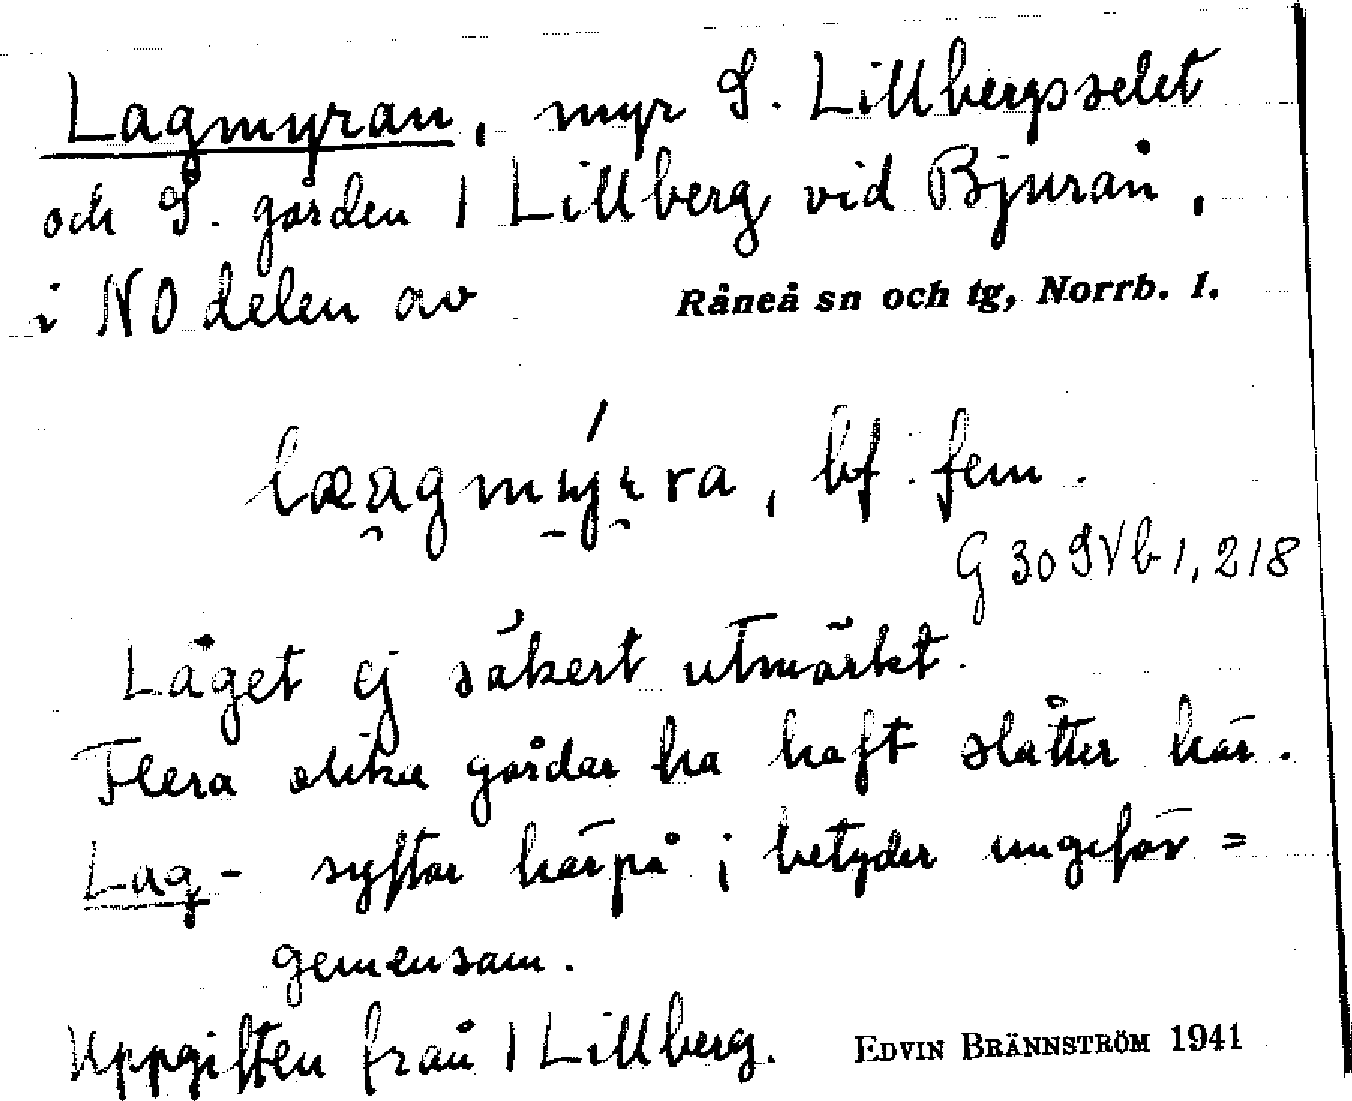 Lagmyran, myr S. Lillbergsselet
och S. gården 1 Lillberg vid Bjuraån,
i NO delen av Råneå sn och tg, Norrb. l.
bf. fem.
G 30 SV b 1, 218
Läget ej säkert utmärkt.
Flera olika gårdar ha haft slåtter här.
Lag- syftar härpå; betyder ungefär =
gemensam.
Uppgiften från 1 Lillberg. EDVIN BRÄNNSTRÖM 1941